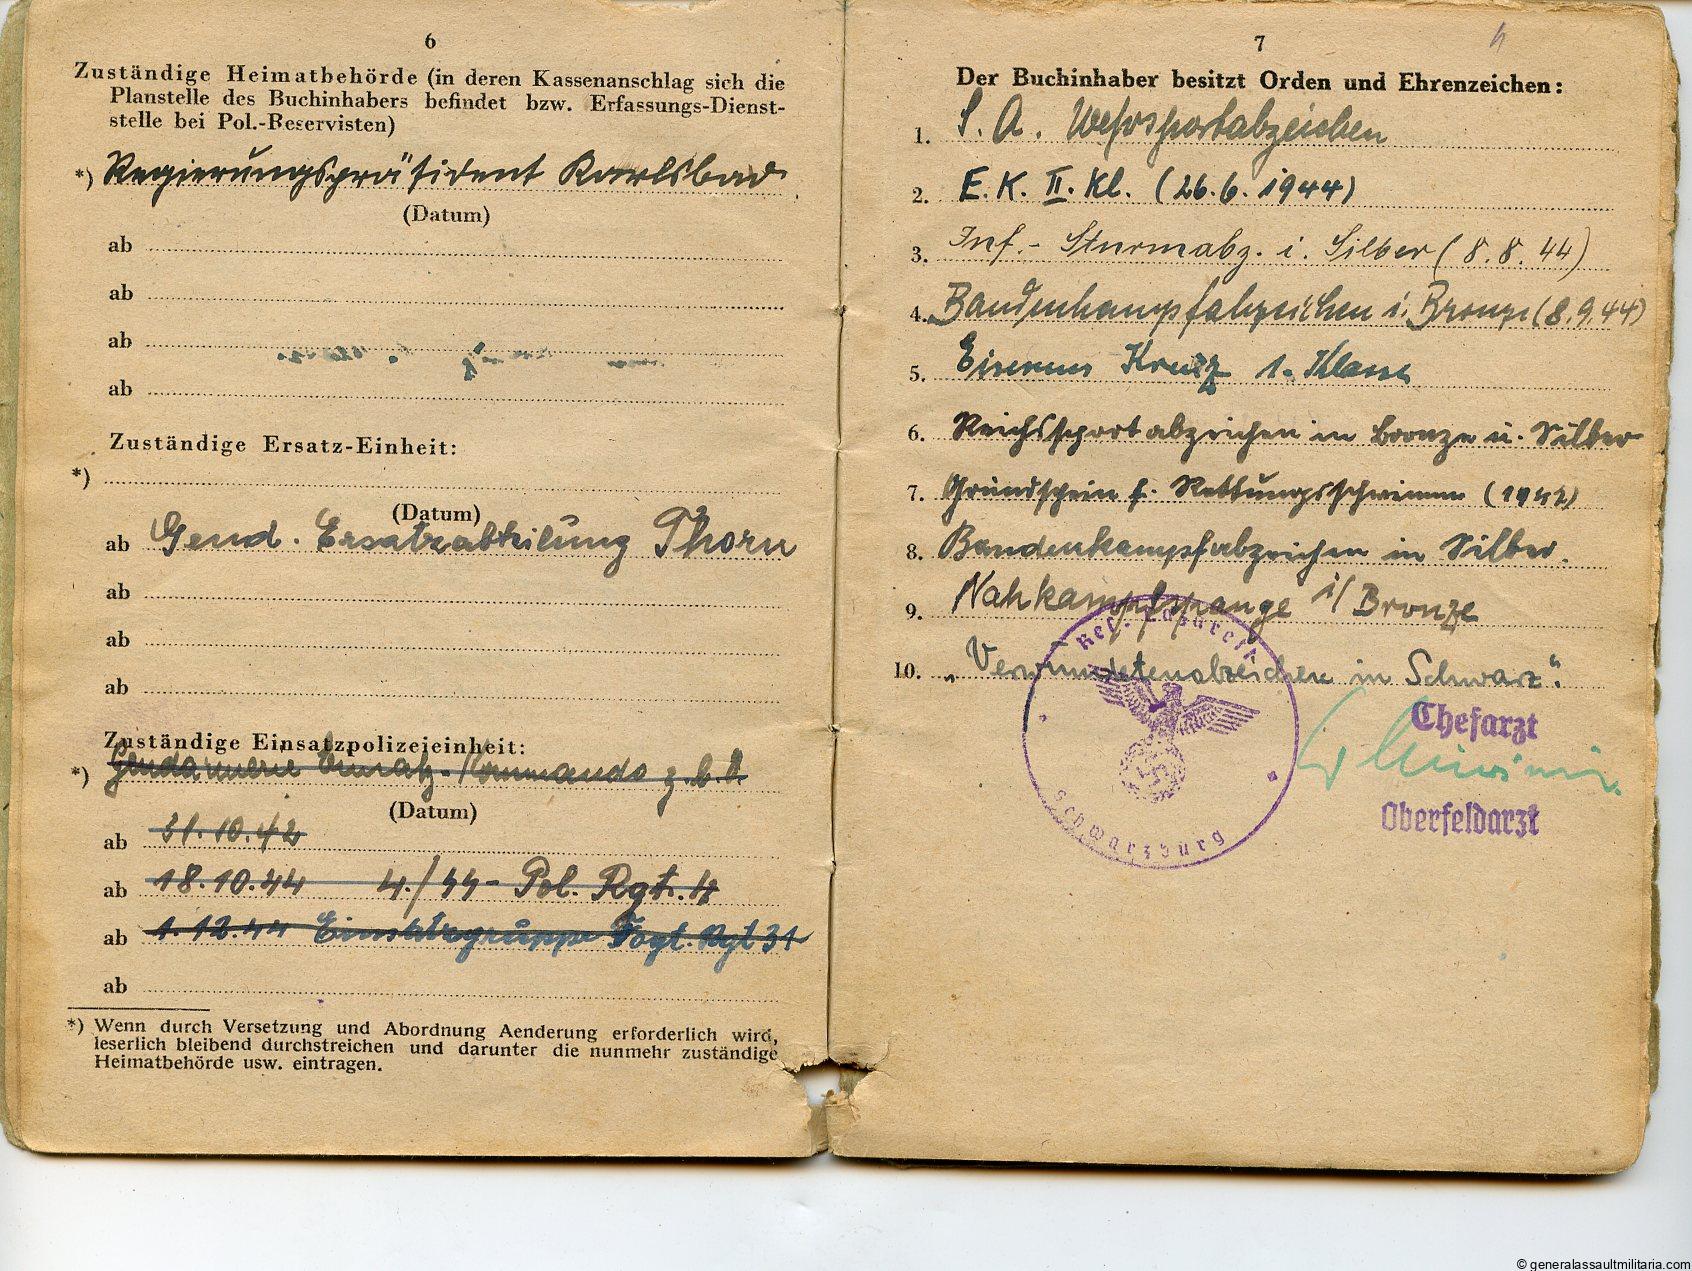 6
Zuständige Heimatbehörde (in deren Kassenanschlag sich die
Planstelle des Buchinhabers befindet bzw. Erfassungs-Dienst-
stelle bei Pol.-Reservisten)
*) Regierungspräsident Karlsbad
(Datum)
ab
ab
ab
ab
Zuständige Ersatz-Einheit:
*)
(Datum)
ab Gend. Ersatzabteilung Thorn
ab
ab
ab
Zuständige Einsatzpolizeieinheit:
*) Gendarmerie Einsatz-Kommando z.b.V.
(Datum)
ab 31.10.42
ab 18.10.44 4./SS-Pol. Rgt. 4
ab 1.12.44 Einsatzgruppe Rgt 31
ab
*) Wenn durch Versetzung und Abordnung Aenderung erforderlich wird,
leserlich bleibend durchstreichen und darunter die nunmehr zuständige
Heimatbehörde usw. eintragen.
7
Der Buchinhaber besitzt Orden und Ehrenzeichen:
1. S.A. Wehrsportabzeichen
2. E.K. II. Kl. (26.6.1944)
3. Inf.-Sturmabz. i. Silber (8.8.44)
4. Bandenkampfabzeichen i. Bronze (8.9.44)
5. Eisernes Kreuz 1. Klasse
6. Reichssportabzeichen in Bronze u. Silber
7. Grundschein f. Rettungsschwimmen (1942)
8. Bandenkampfabzeichen in Silber.
9. Nahkampfspange i/Bronze
10. „Verwundetenabzeichen in Schwarz“.
Res. Lazarett
Schwarzburg
Chefarzt
Oberfeldarzt
© generalassaultmilitaria.com